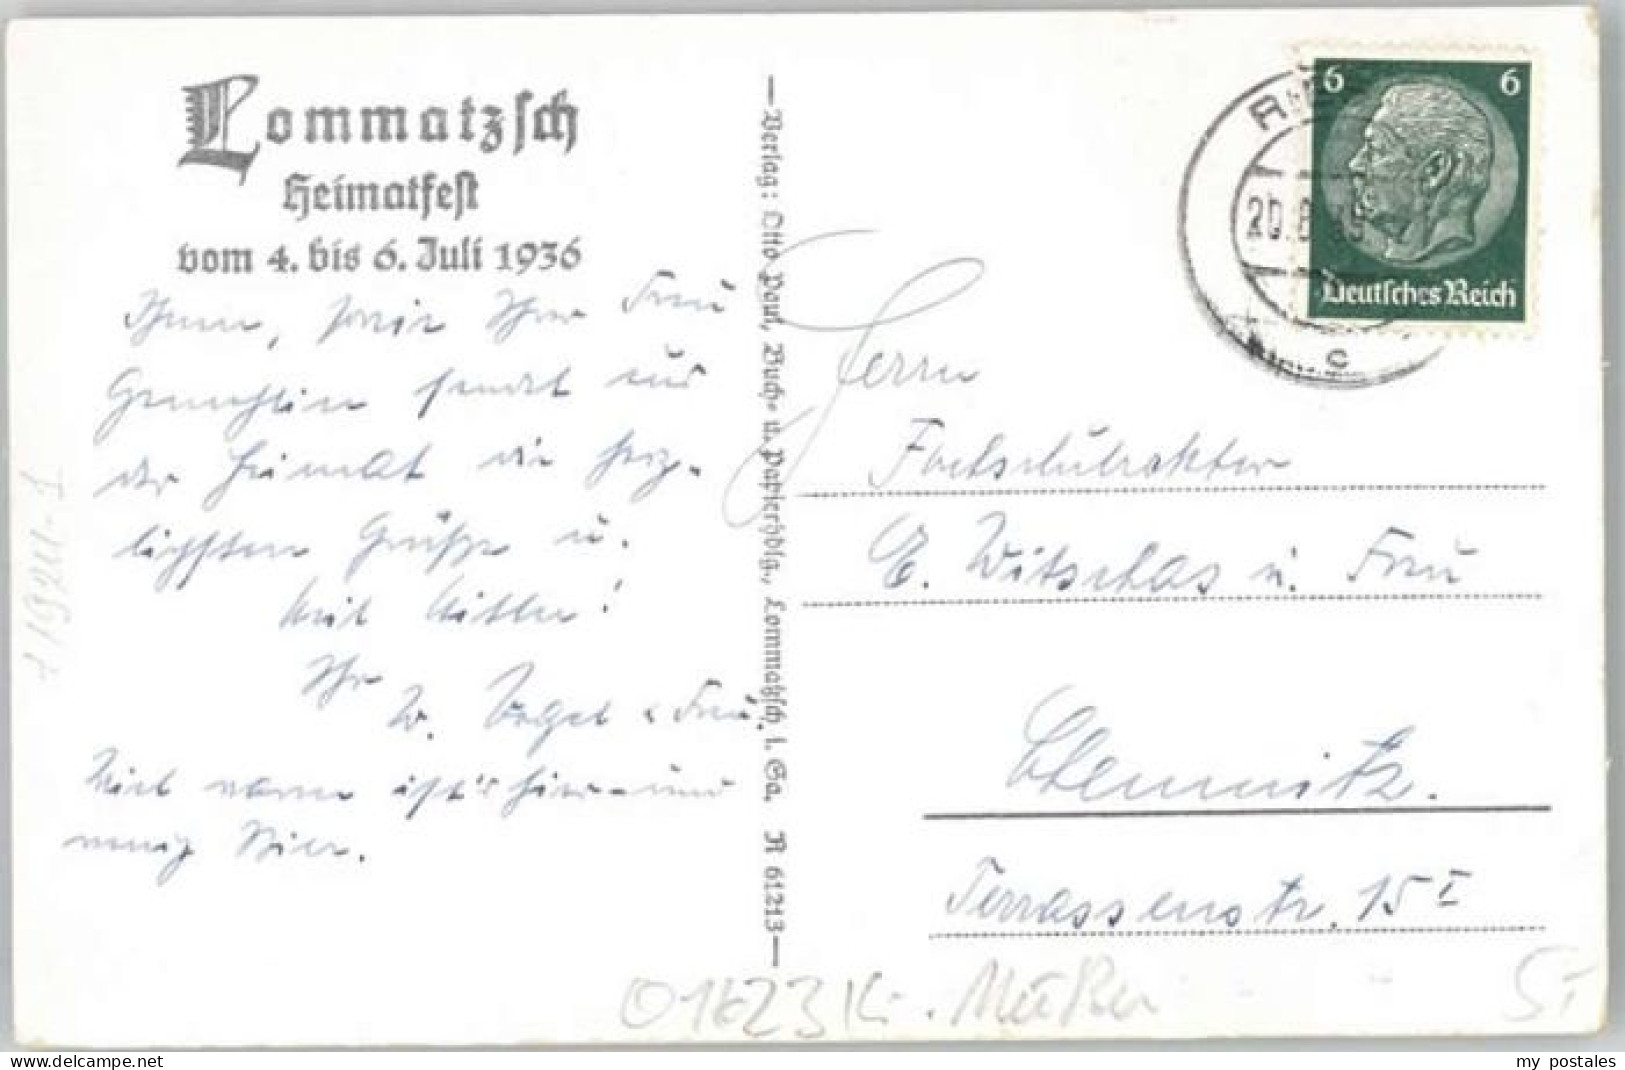 Lommatzsch
Heimatfest
vom 4. bis 6. Juli 1936
Ihnen, sowie Ihrer Frau
Gemahlin sendet aus
der Heimat die herz-
lichsten Grüße u.
Heil Hitler!
Ihr
W. Vogel u. Frau.
warm ist's hier
wenig Bier.
—Verlag: Otto Paul, Buch- u. Papierhdlg., Lommatzsch i. Sa. R 61213—
6 6
Deutsches Reich
20.6.36
c
Herrn
E. Witschas u. Frau
Chemnitz.
Terrassenstr. 15 I
01623 K
St
my_postales